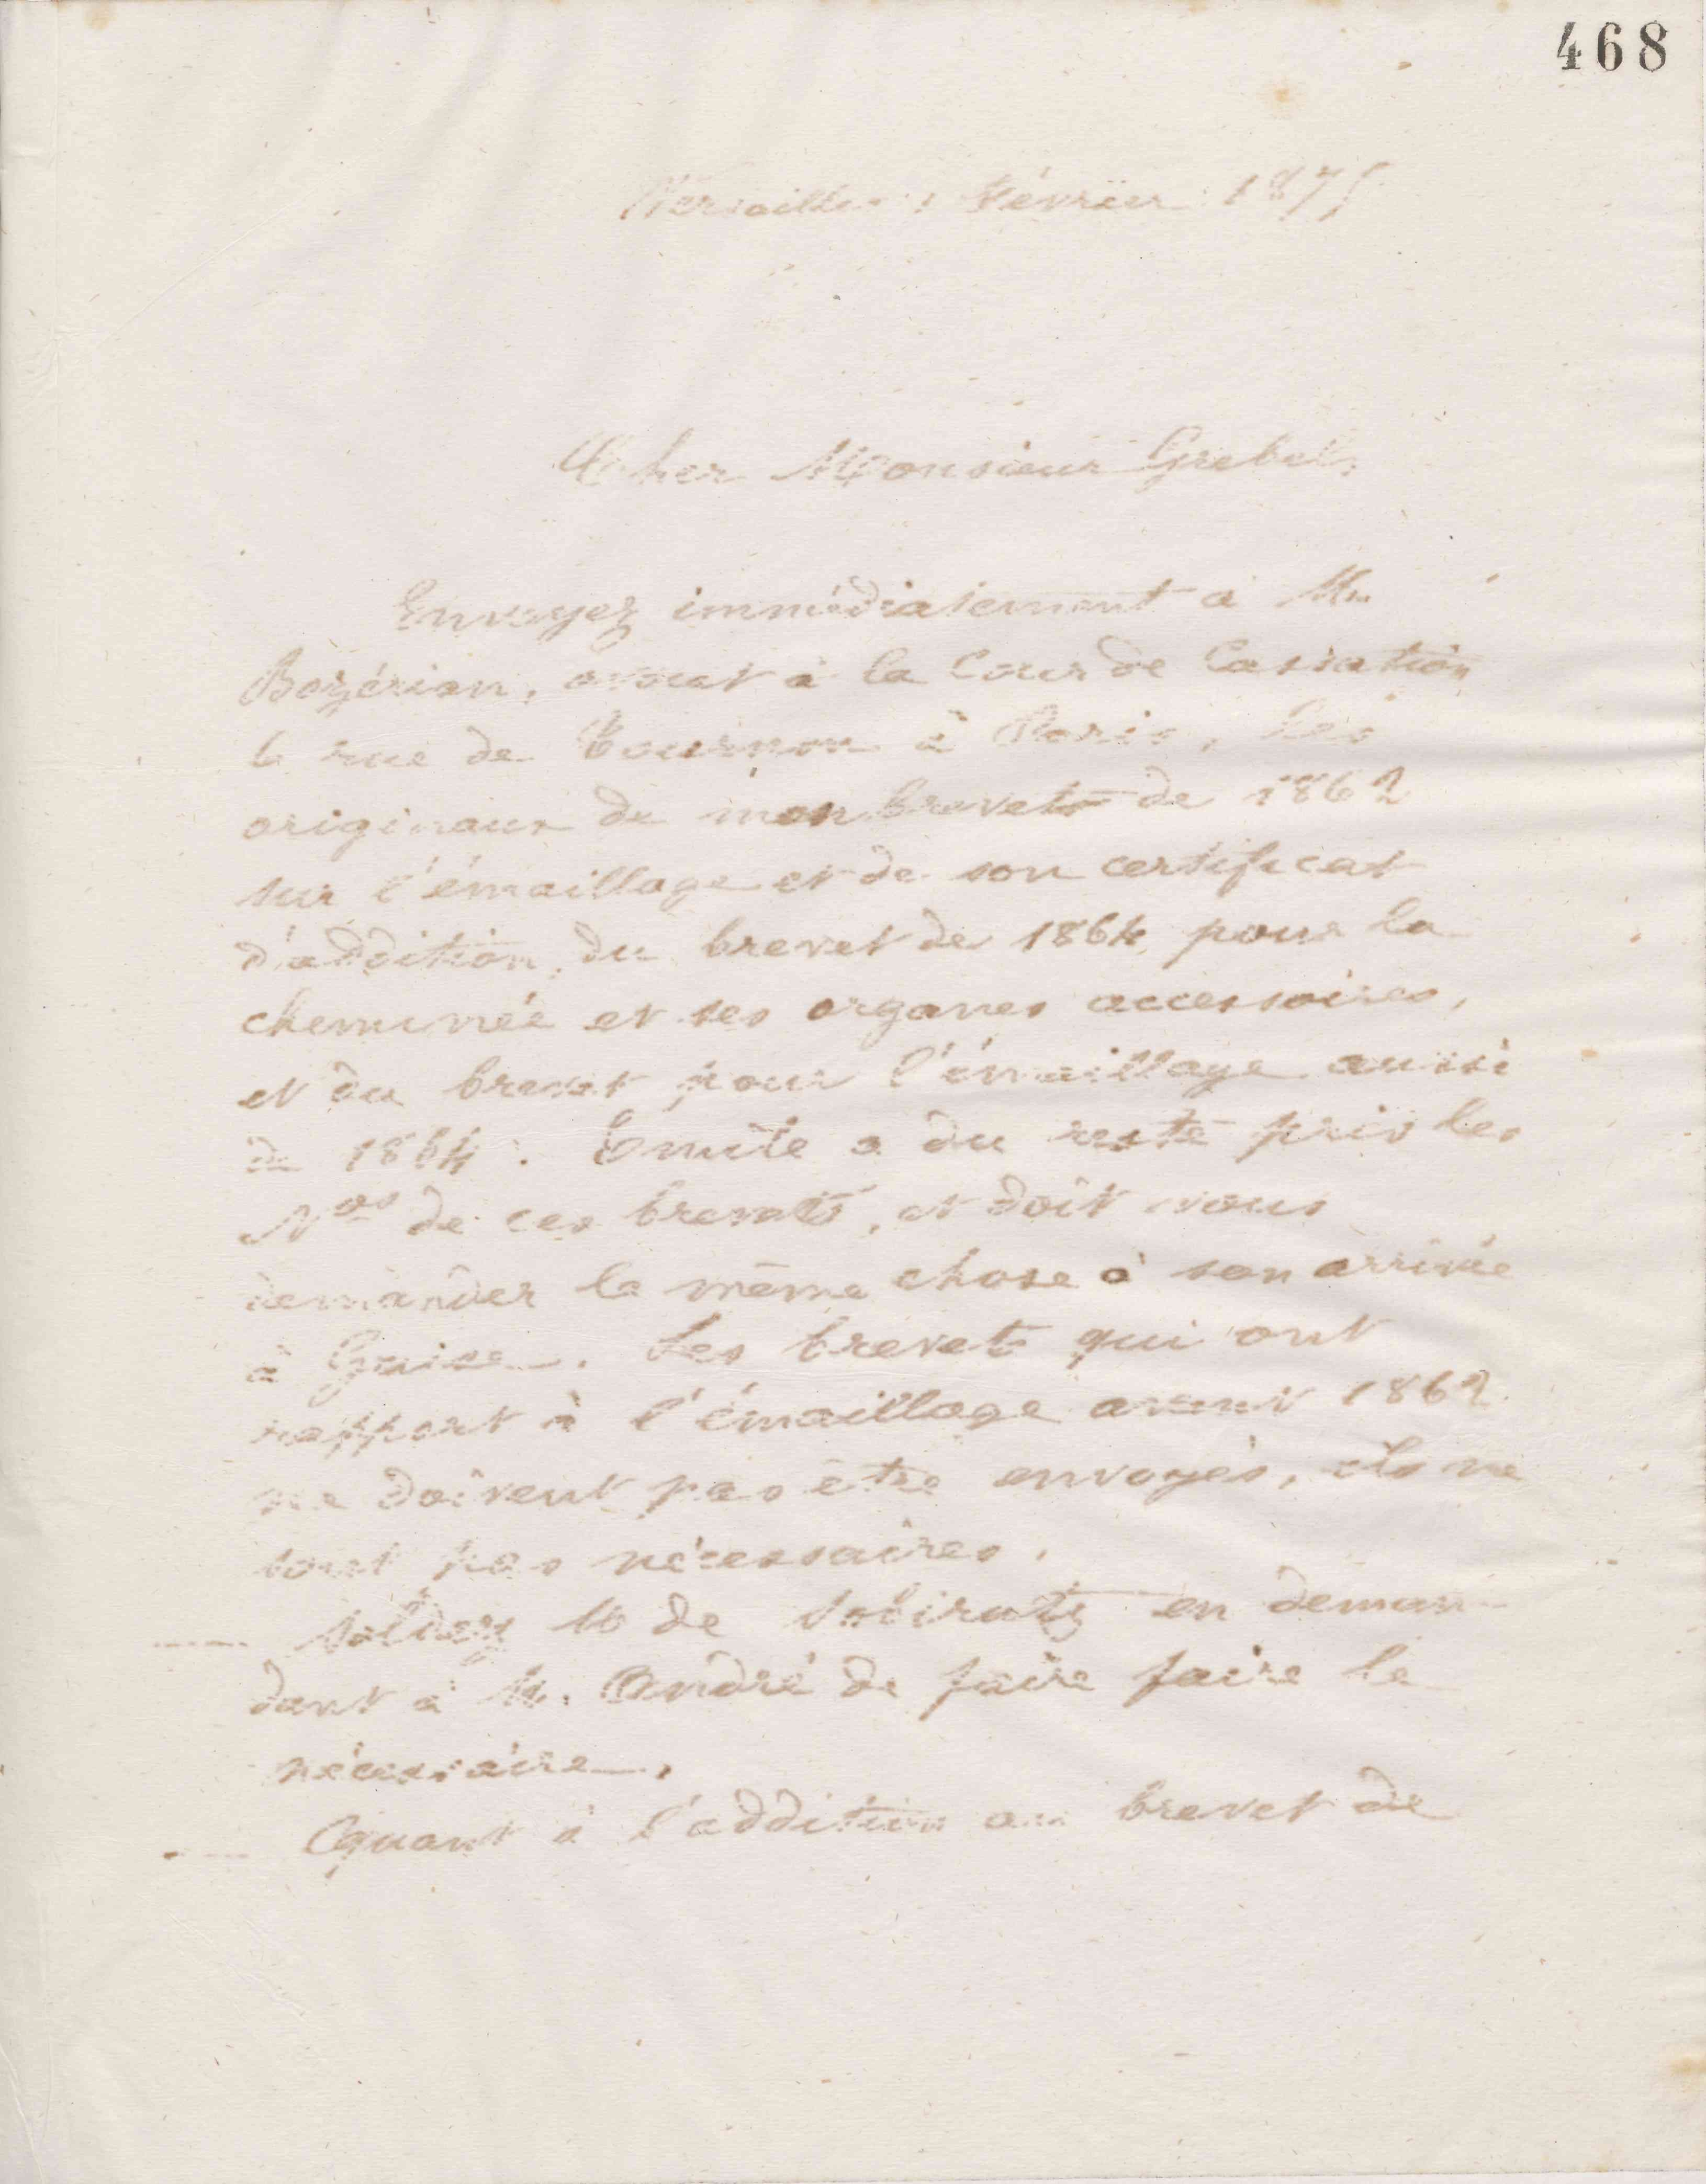 468
Versailles, Février 1875
Cher Monsieur Grebel,
Envoyez immédiatement à Mr
Bozérian, avocat à la Cour de Cassation
rue de Tournon à Paris, les
originaux de mon brevet de 1862
sur l'émaillage et de son certificat
d'addition, du brevet de 1864 pour la
cheminée et ses organes accessoires,
et du brevet pour l'émaillage aussi
de 1864. Emile a du reste pris les
Nos de ces brevets, et doit vous
demander la même chose à son arrivée
à Guise. Les brevets qui ont
rapport à l'émaillage avant 1862
ne doivent pas être envoyés, ils ne
sont pas nécessaires.
M de en deman-
dant à M. André de faire faire le
nécessaire.
Quant à l'addition au brevet de